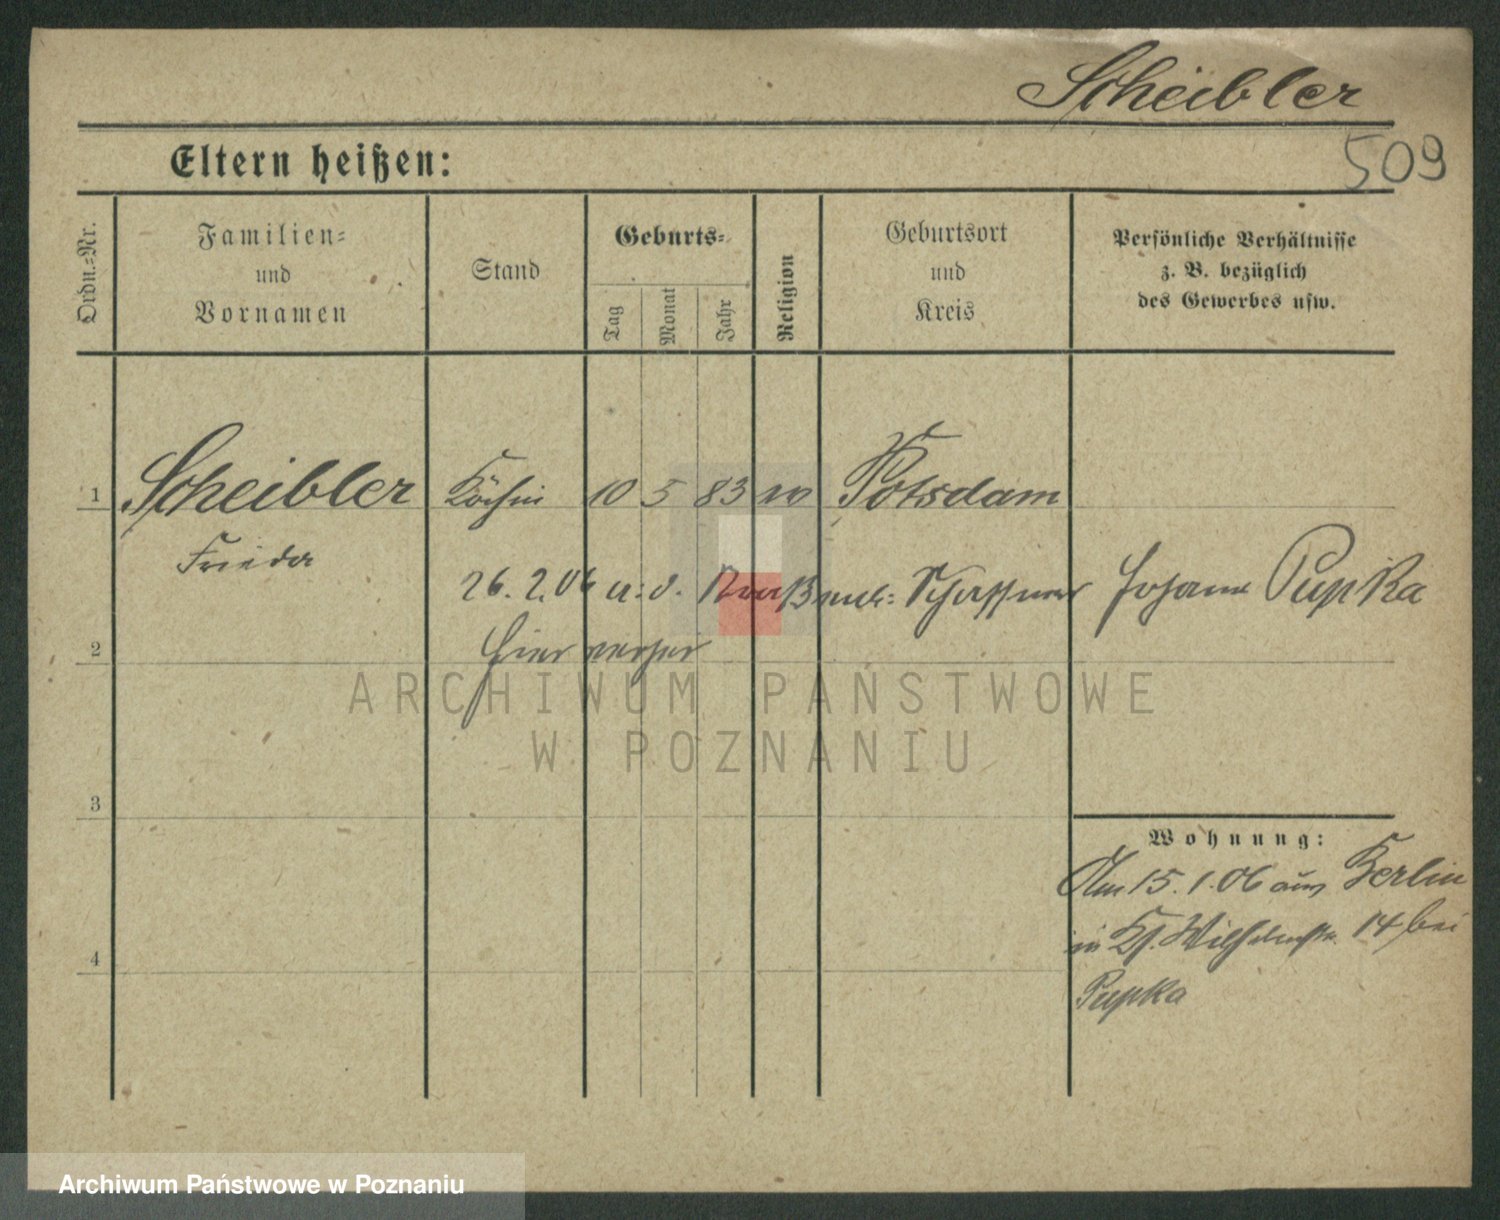 Scheibler
509
Eltern heißen:
Ordn.-Nr.
Familien-
und
Vornamen
Stand
Geburts-
Tag
Monat
Jahr
Religion
Geburtsort
und
Kreis
Persönliche Verhältnisse
z. B. bezüglich
des Gewerbes usw.
1 Scheibler Köchin 10 5 83 Potsdam
Frieda
26. 2. 06 u. d. Schaffner Johann Pupka
hier verher
2
3
4
Wohnung:
Am 15. 1. 06 aus Berlin
in Kl. Wilhelmstr. 14 bei
Pupka
ARCHIWUM PAŃSTWOWE
W POZNANIU
Archiwum Państwowe w Poznaniu